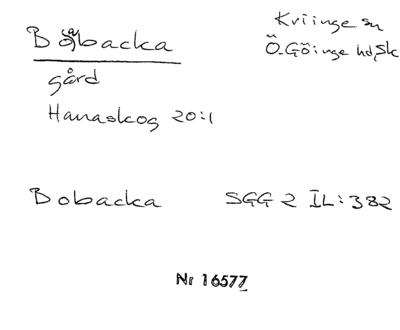 Bobacka
Kviinge sn
Ö. Göinge hd, Sk
gård
Hanaskog 20:1
Bobacka SGG 2 IL: 382
Nr 16577